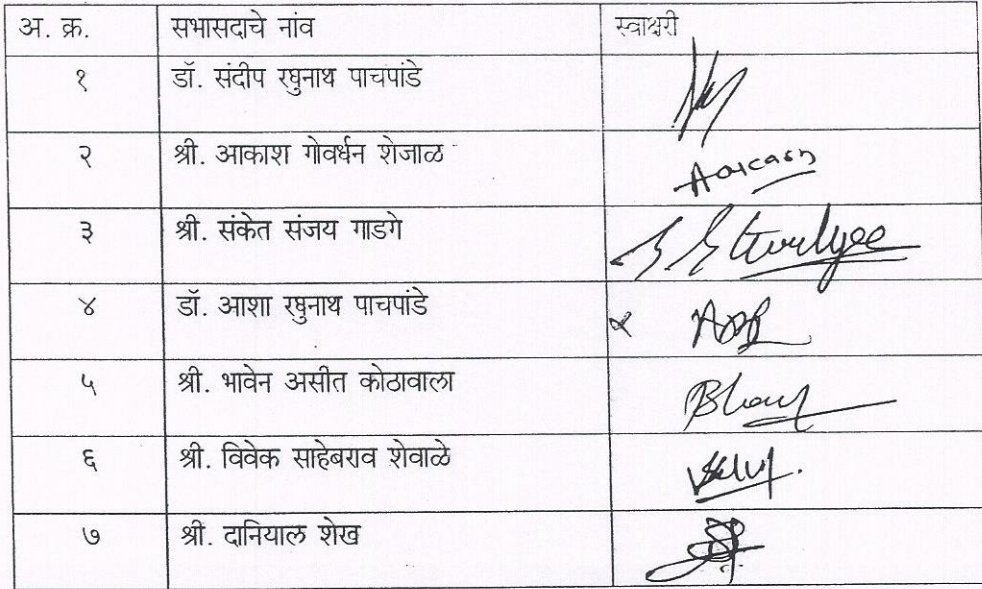 अ. क्र. सभासदाचे नांव स्वाक्षरी
१ डॉ. संदीप रघुनाथ पाचपांडे
२ श्री. आकाश गोवर्धन शेजाळ
३ श्री. संकेत संजय गाडगे
४ डॉ. आशा रघुनाथ पाचपांडे
५ श्री. भावेन असीत कोठावाला
६ श्री. विवेक साहेबराव शेवाळे
७ श्री. दानियाल शेख